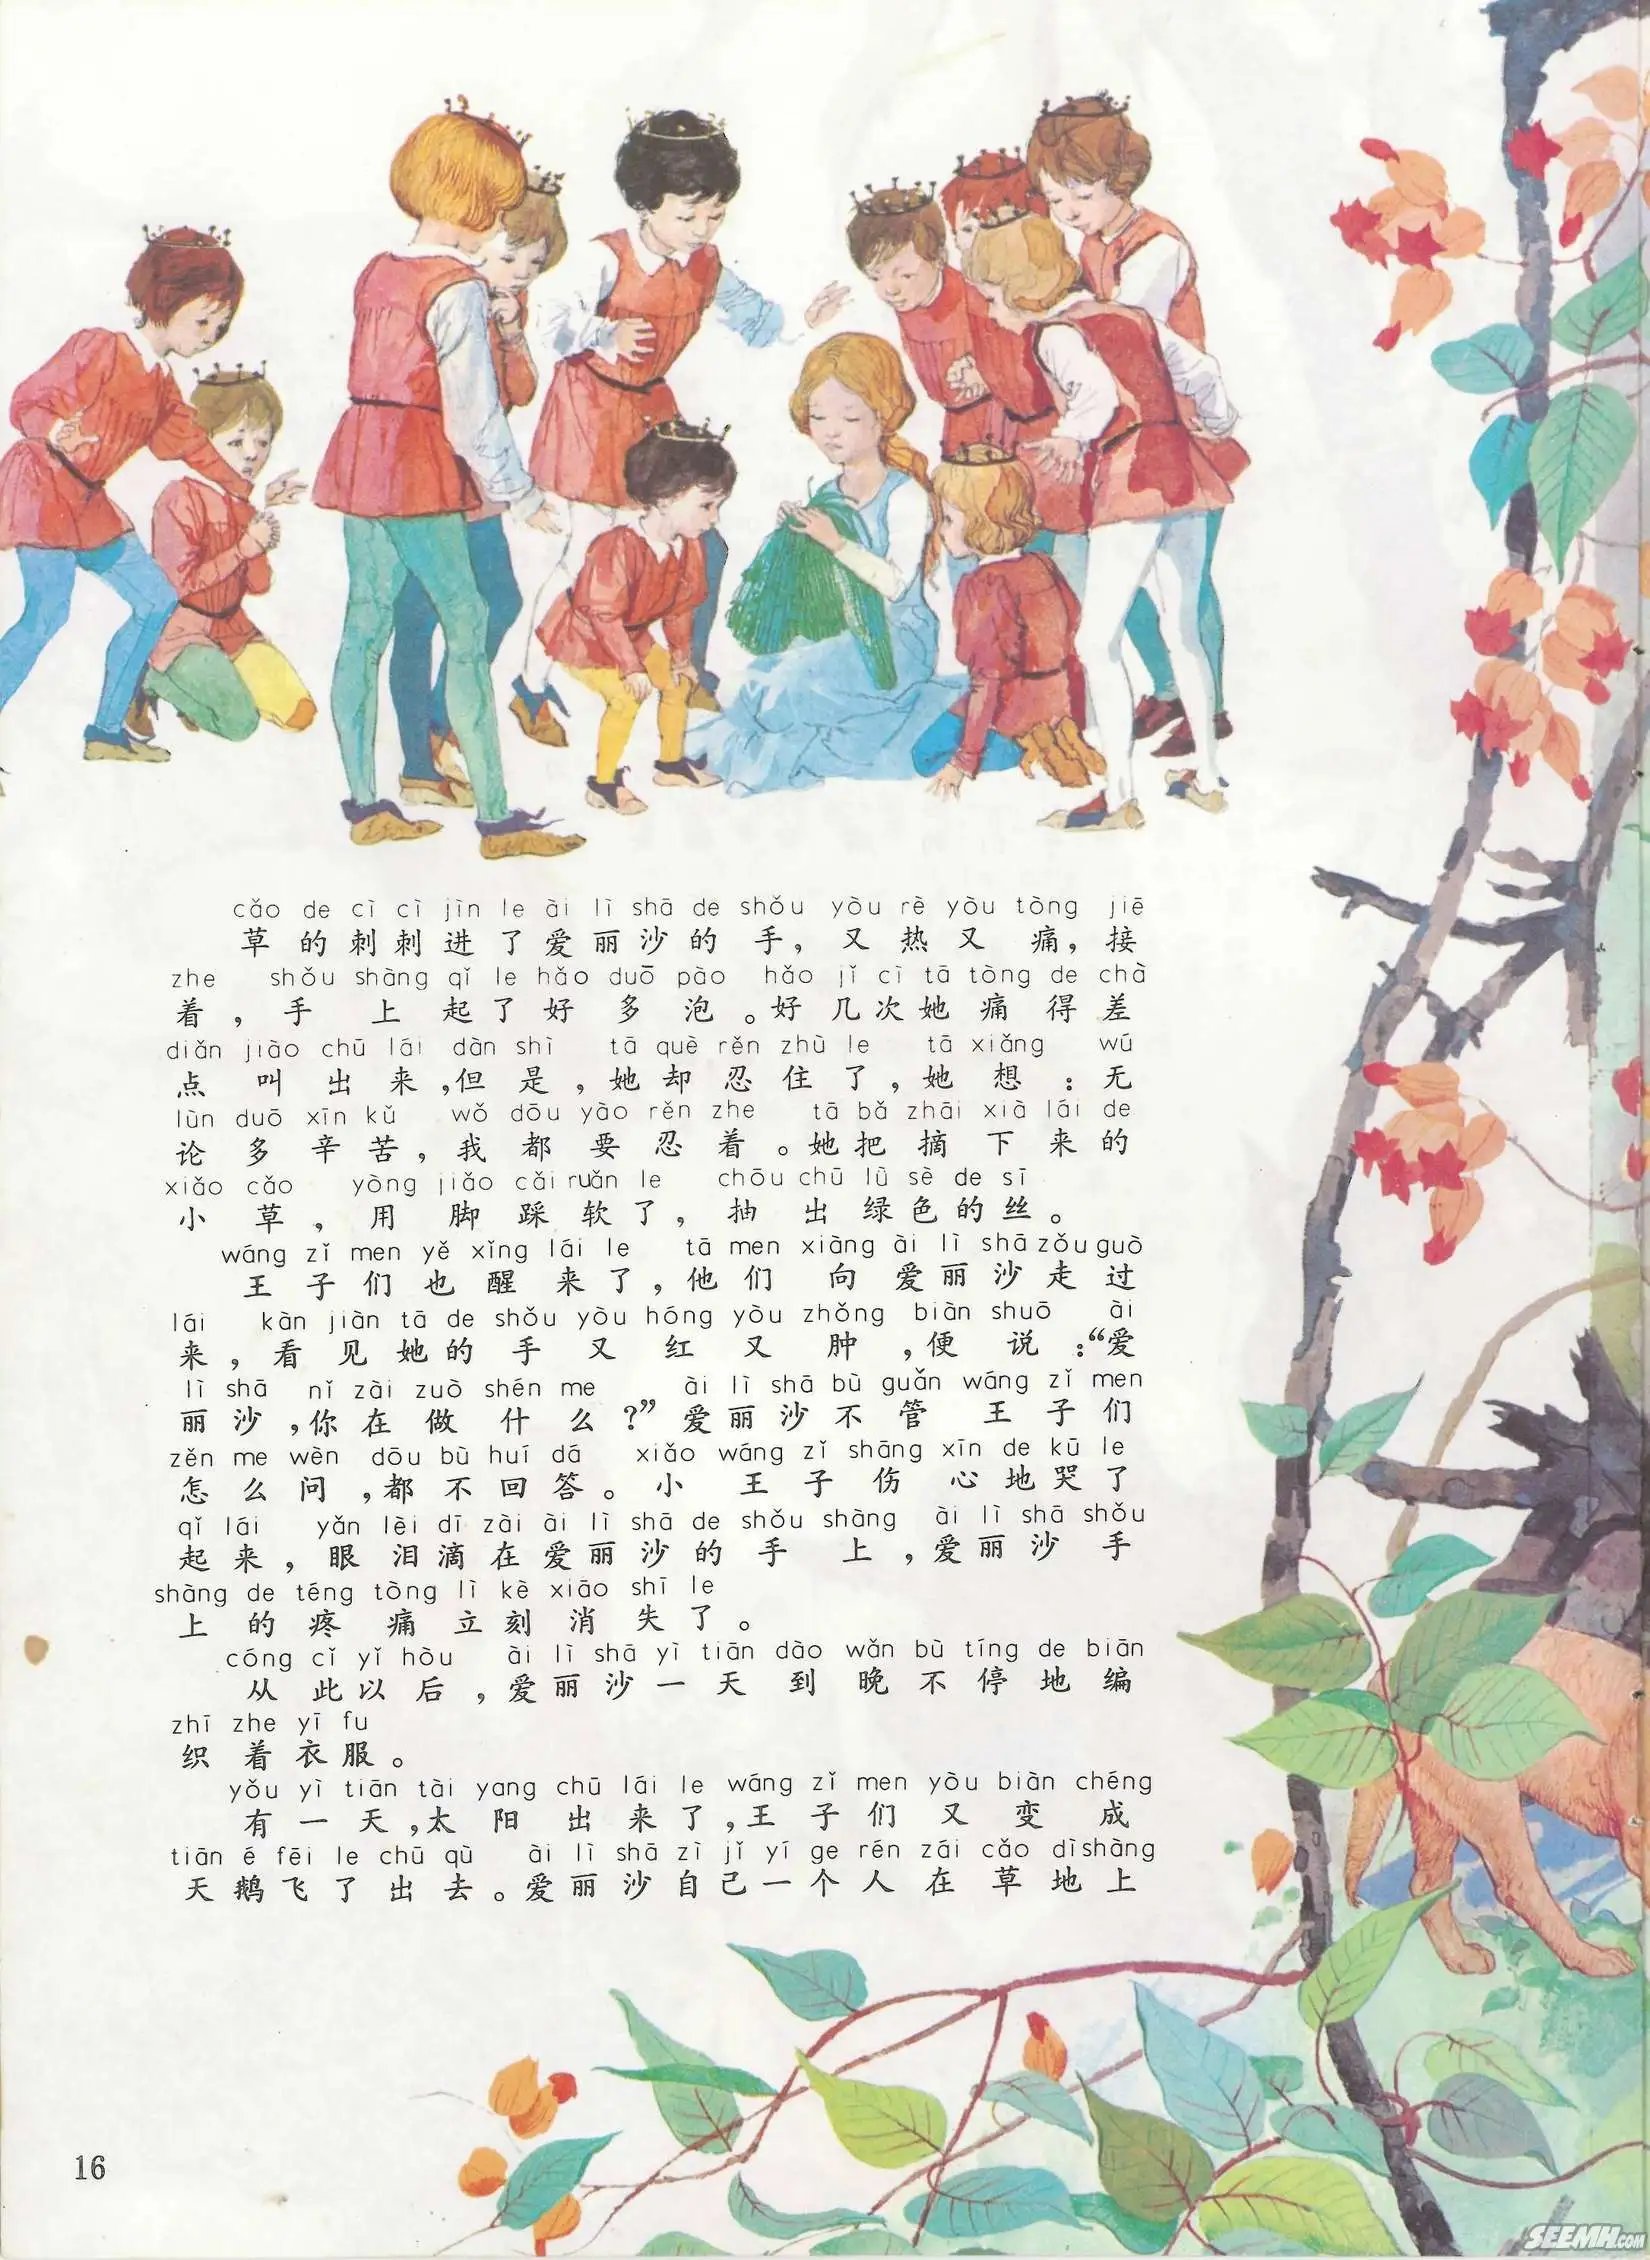 cǎo de cì cì jìn le ài lì shā de shǒu yòu rè yòu tòng jiē
草的刺刺进了爱丽沙的手，又热又痛，接
zhe shǒu shàng qǐ le hǎo duō pào hǎo jǐ cì tā tòng de chà
着，手上起了好多泡。好几次她痛得差
diǎn jiào chū lái dàn shì tā què rěn zhù le tā xiǎng wú
点叫出来，但是，她却忍住了，她想：无
lùn duō xīn kǔ wǒ dōu yào rěn zhe tā bǎ zhāi xià lái de
论多辛苦，我都要忍着。她把摘下来的
xiǎo cǎo yòng jiǎo cǎi ruǎn le chōu chū lǜ sè de sī
小草，用脚踩软了，抽出绿色的丝。
wáng zǐ men yě xǐng lái le tā men xiàng ài lì shā zǒu guò
王子们也醒来了，他们向爱丽沙走过
lái kàn jiàn tā de shǒu yòu hóng yòu zhǒng biàn shuō ài
来，看见她的手又红又肿，便说：“爱
lì shā nǐ zài zuò shén me ài lì shā bù guǎn wáng zǐ men
丽沙，你在做什么？”爱丽沙不管王子们
zěn me wèn dōu bù huí dá xiǎo wáng zǐ shāng xīn de kū le
怎么问，都不回答。小王子伤心地哭了
qǐ lái yǎn lèi dī zài ài lì shā de shǒu shàng ài lì shā shǒu
起来，眼泪滴在爱丽沙的手上，爱丽沙手
shàng de téng tòng lì kè xiāo shī le
上的疼痛立刻消失了。
cóng cǐ yǐ hòu ài lì shā yì tiān dào wǎn bù tíng de biān
从此以后，爱丽沙一天到晚不停地编
zhī zhe yī fu
织着衣服。
yǒu yì tiān tài yang chū lái le wáng zǐ men yòu biàn chéng
有一天，太阳出来了，王子们又变成
tiān é fēi le chū qù ài lì shā zì jǐ yí ge rén zái cǎo dì shàng
天鹅飞了出去。爱丽沙自己一个人在草地上
16
SEEMH.COM